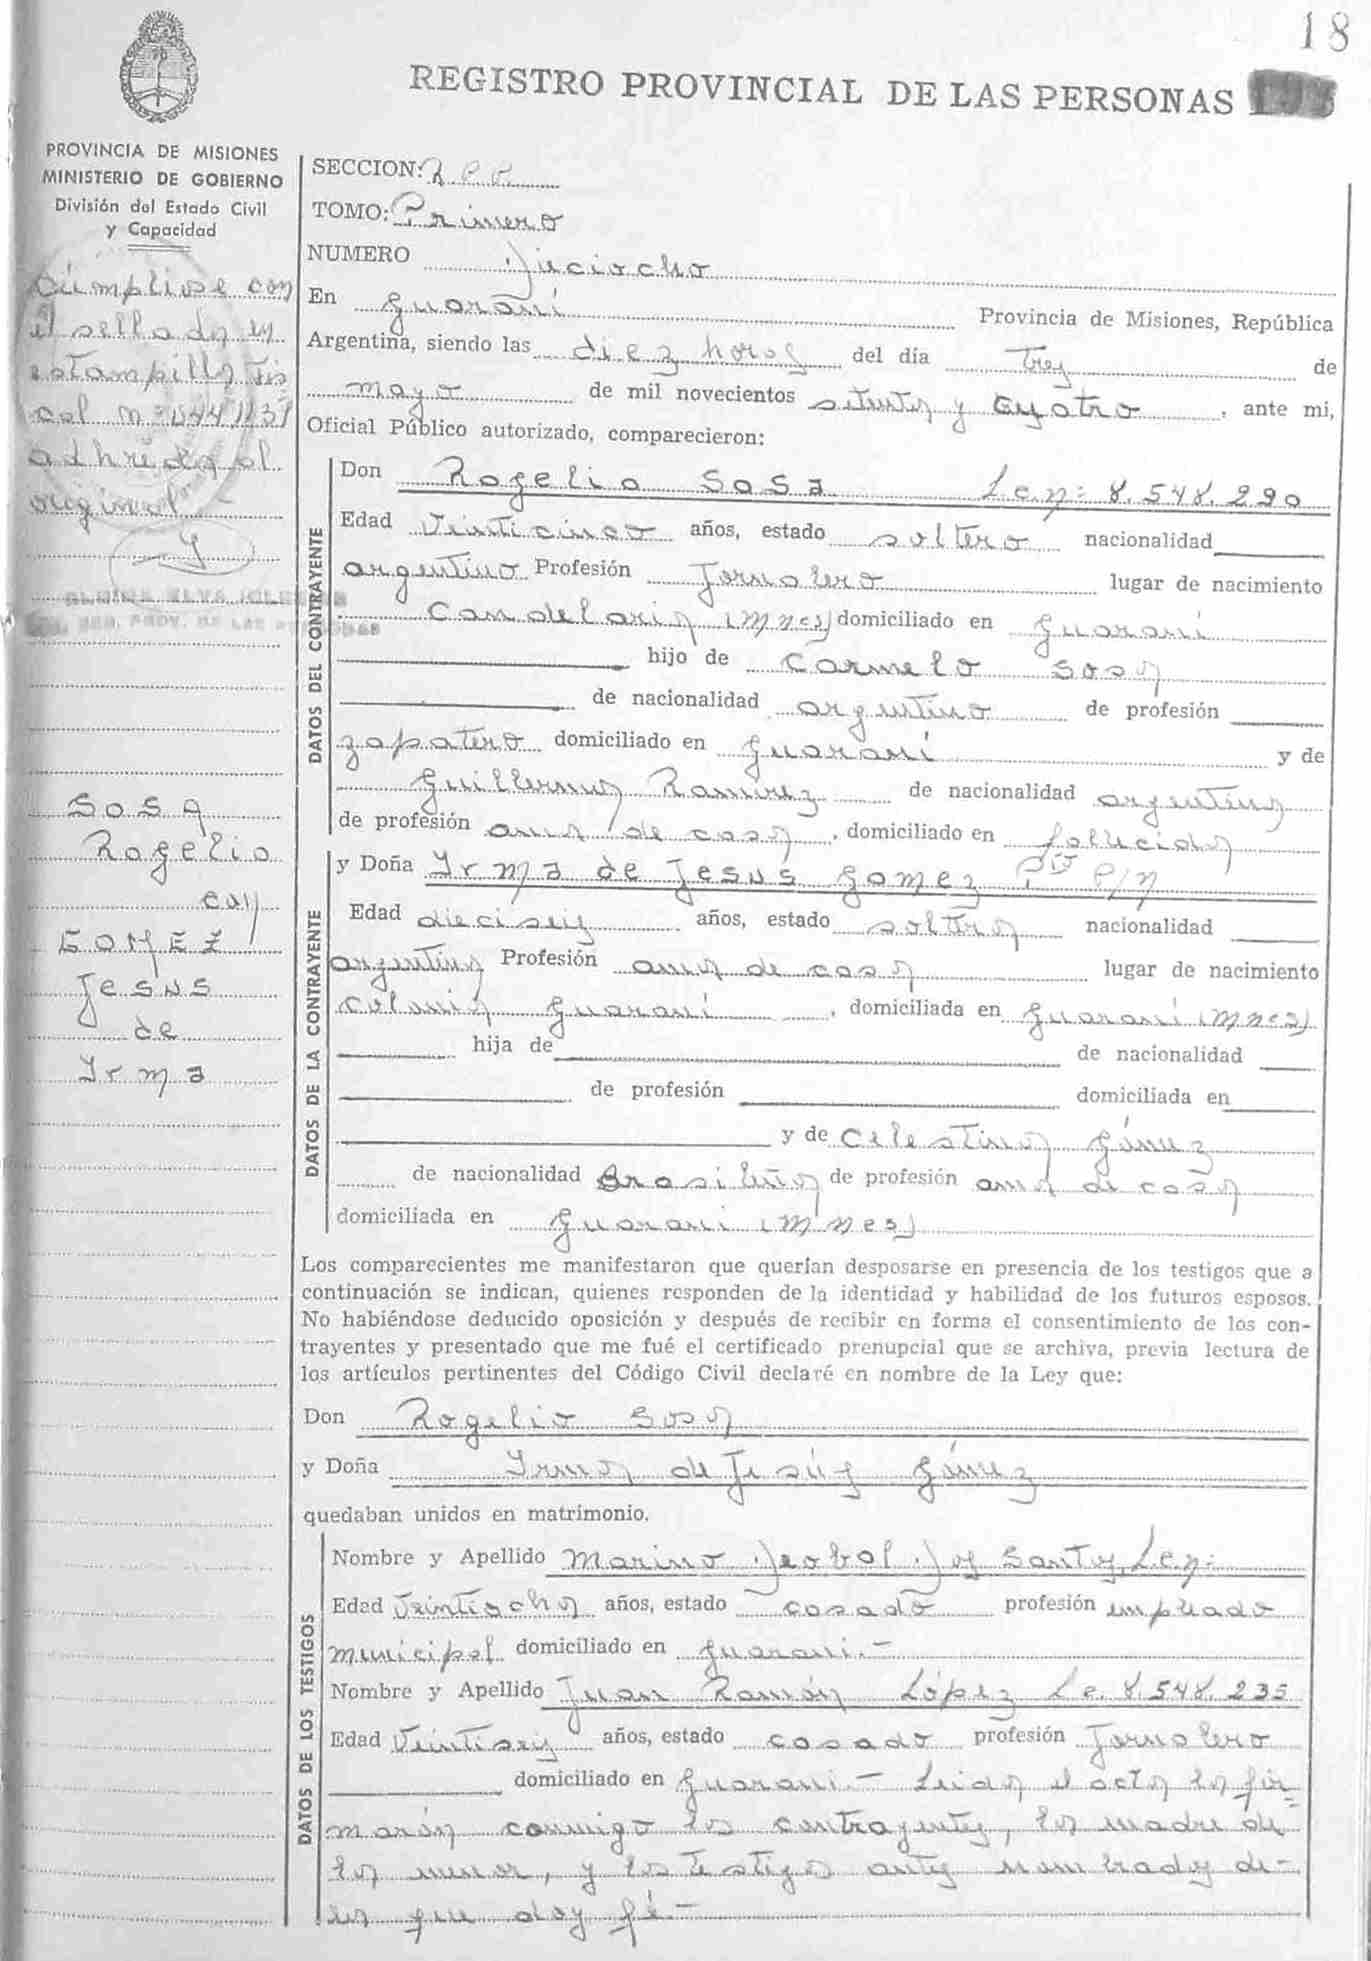 18
REGISTRO PROVINCIAL DE LAS PERSONAS
PROVINCIA DE MISIONES
MINISTERIO DE GOBIERNO
División del Estado Civil
y Capacidad
Cúmpliose con
el sellado en
estampilla fis
cal
adherida al
original
SOSA
Rogelio
con
GOMEZ
Jesus
de
Yrma
SECCION:
TOMO: Primero
NUMERO Dieciocho
En Guaraní Provincia de Misiones, República
Argentina, siendo las diez horas del día tres de
mayo de mil novecientos setenta y cuatro, ante mi,
Oficial Público autorizado, comparecieron:
DATOS DEL CONTRAYENTE
Don Rogelio Sosa L.e.n: 8.548.290
Edad Veinticinco años, estado soltero nacionalidad
argentino Profesión Jornalero lugar de nacimiento
Candelaria (Mnes) domiciliado en Guaraní
hijo de Carmelo Sosa
de nacionalidad argentino de profesión
zapatero domiciliado en Guaraní y de
Guillerma Ramirez de nacionalidad argentina
de profesión ama de casa, domiciliado en fallecida
DATOS DE LA CONTRAYENTE
y Doña Yrma de Jesus Gomez
Edad dieciseis años, estado soltera nacionalidad
argentina Profesión ama de casa lugar de nacimiento
colonia Guaraní, domiciliada en Guaraní (Mnes)
hija de de nacionalidad
de profesión domiciliada en
y de Celestina Gómez
de nacionalidad Brasileña de profesión ama de casa
domiciliada en Guaraní (Mnes)
Los comparecientes me manifestaron que querían desposarse en presencia de los testigos que a
continuación se indican, quienes responden de la identidad y habilidad de los futuros esposos.
No habiéndose deducido oposición y después de recibir en forma el consentimiento de los con-
trayentes y presentado que me fué el certificado prenupcial que se archiva, previa lectura de
los artículos pertinentes del Código Civil declaré en nombre de la Ley que:
Don Rogelio Sosa
y Doña Yrma de Jesús Gómez
quedaban unidos en matrimonio.
DATOS DE LOS TESTIGOS
Nombre y Apellido Marino Da Santos, L.e.n:
Edad Veintiocho años, estado casado profesión empleado
municipal domiciliado en Guaraní.-
Nombre y Apellido Juan Ramón López Le. 8.548.235
Edad Veintiseis años, estado casado profesión Jornalero
domiciliado en Guaraní.- Leida el acta la fir=
marón conmigo los contrayentes, la madre de
la menor, y los testigos antes nombrados de-
lo que doy fé.-